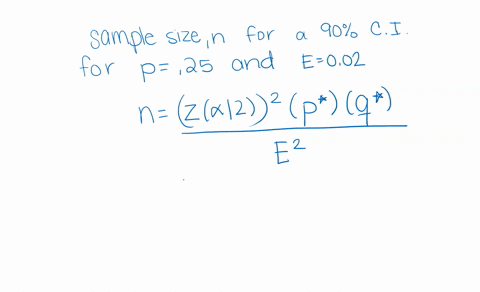 sample size, n for a 90% C.I.
for p=.25 and E=0.02
n = (z(α/2))² (p*)(q*)
E²